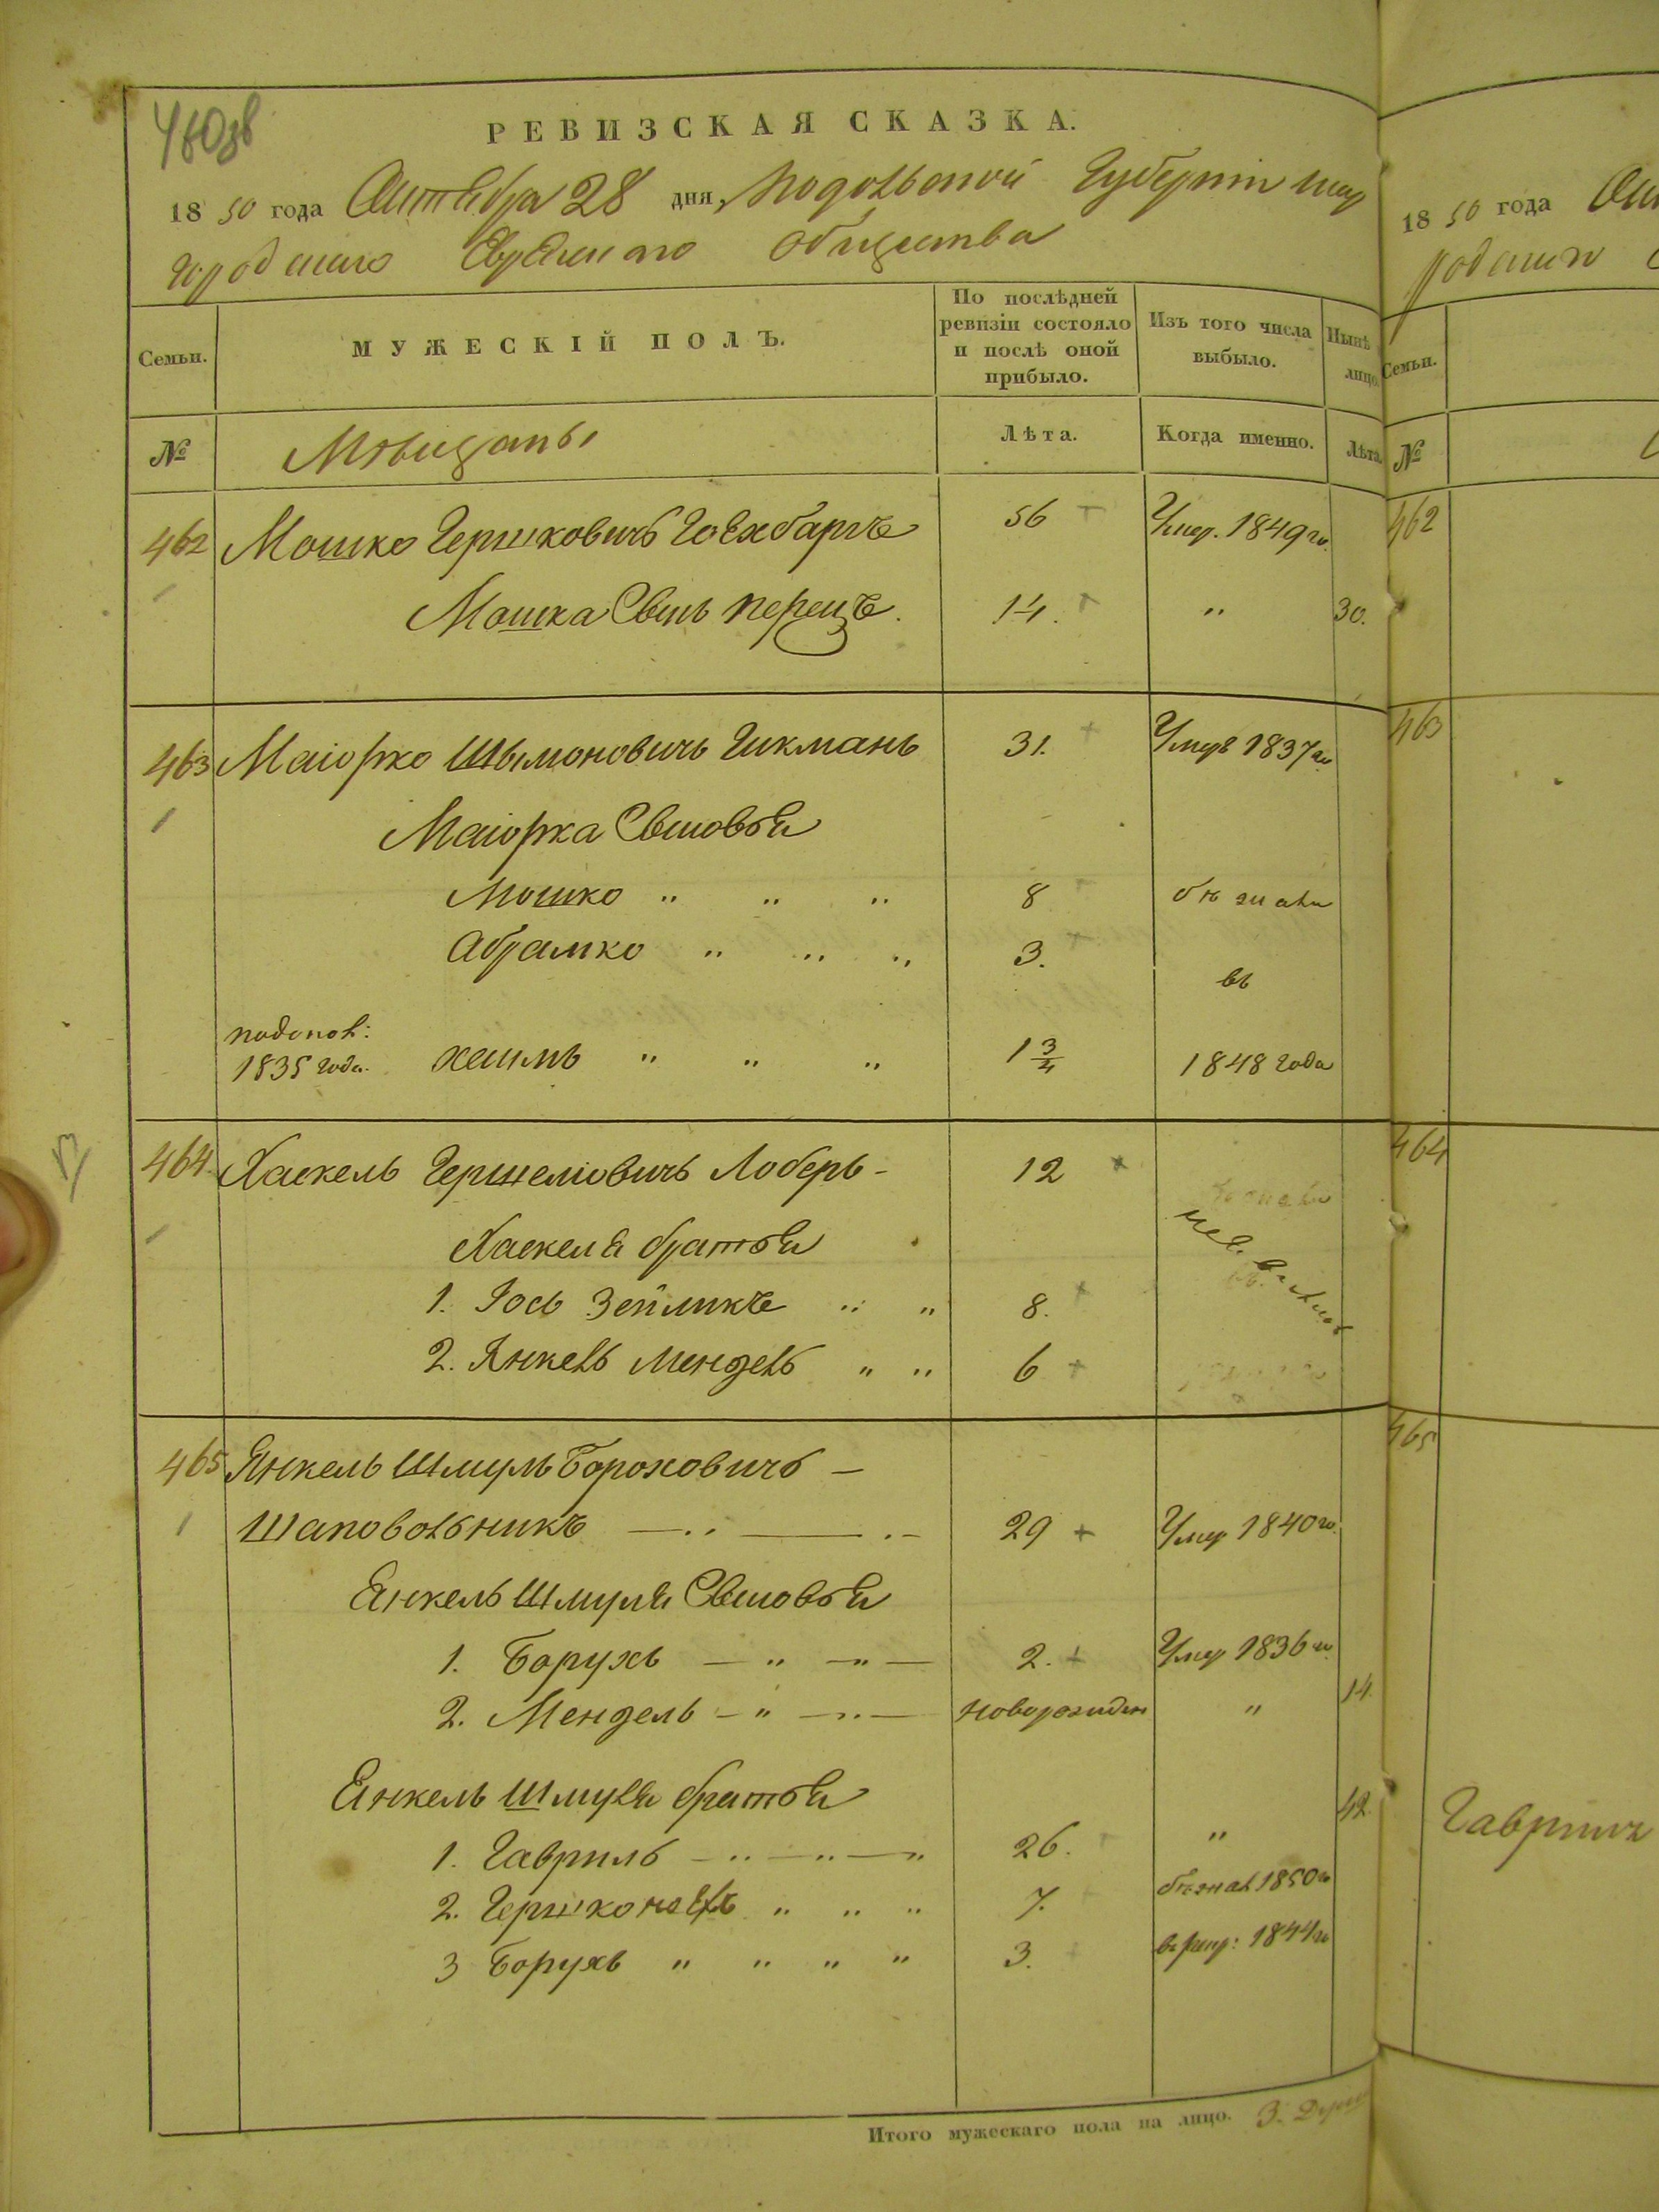 РЕВИЗСКАЯ СКАЗКА.
1850 года Октября 28 дня, Подольской Губерніи Шар
городскаго Еврейскаго Общества
Семьи. МУЖЕСКІЙ ПОЛЪ. По послѣдней ревизіи состояло и послѣ оной прибыло. Изъ того числа выбыло. Нынѣ лицо
№ Мѣщаны Лѣта. Когда именно. Лѣта.
462 Мошко Гершковичъ Голхбаргъ 56 Умер. 1849 го.
Мошка Сынъ Перецъ. 14. " 30.
463 Маіорко Шымоновичь Гикмань 31. Умеръ 1837 го.
Маіорка Сыновья
Мошко " " " 8 бѣжали
Абрамко " " " 3. въ
подопол:
1835 года. Хаимъ " " " 1 3/4 1848 года
464 Хаскель Гершеліовичь Лоберь - 12
Хаскеля братья
1. Іось Зейликъ " " 8.
2. Янкель Мендель " " 6
465 Янкель Шмуль Бороховичъ —
Шаповольникъ 29 Умер 1840 го.
Янкель Шмуля Сыновья
1. Борухъ — " — " — 2. Умер 1836 го.
2. Мендель — " — " — новорожден " 14.
Янкель Шмуля братья
1. Гавриль — " — " — " 26. " 42.
2. Гершко " " " 7. бѣжал 1850 го
3 Борухъ " " " " 3. в рекр: 1844 го
Итого мужескаго пола на лицо. 3. Души
1850 года
родскаго
Семьи.
№
462
463
464
465